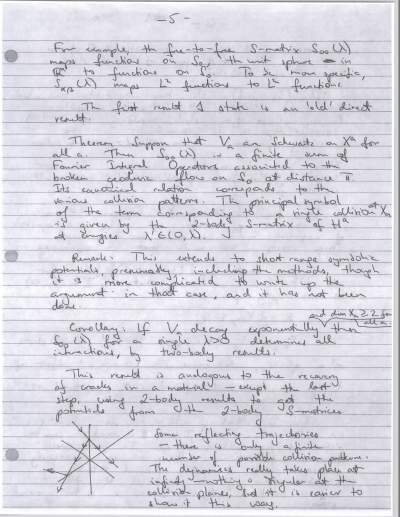 - 5 -
For example, the free-to-free S-matrix S₀₀(λ)
maps functions on S₀, the unit sphere in
ℝⁿ to functions on S₀. To be more specific,
S_αβ(λ) maps L² functions to L² functions.
The first result I state is an 'old' direct
result.
Theorem. Suppose that Vₐ are Schwartz on Xᵃ for
all a. Then S₀₀(λ) is a finite sum of
Fourier Integral Operators associated to the
broken geodesic flow on S₀ at distance π.
Its canonical relation corresponds to the
various collision patterns. The principal symbol
of the term corresponding to a single collision at Xₐ
is given by the 2-body S-matrix of Hᵃ
at energies λ' ∈ (0, λ).
Remark: This extends to short range symbolic
potentials, presumably, including the methods, though
it is more complicated to write up the
argument in that case, and it has not been
done.
and dim Xₐ ≥ 2 for all a
Corollary: If Vₐ decay exponentially then
S₀₀(λ) for a single λ>0 determines all
interactions, by two-body results.
This result is analogous to the recovery
of cracks in a material - except the last
step, using 2-body results to get the
potentials from the 2-body S-matrices.
Some reflecting trajectories
- there is only a finite
number of possible collision patterns.
The dynamics really takes place at
infinity - nothing singular at the
collision planes, but it is easier to
show it this way.